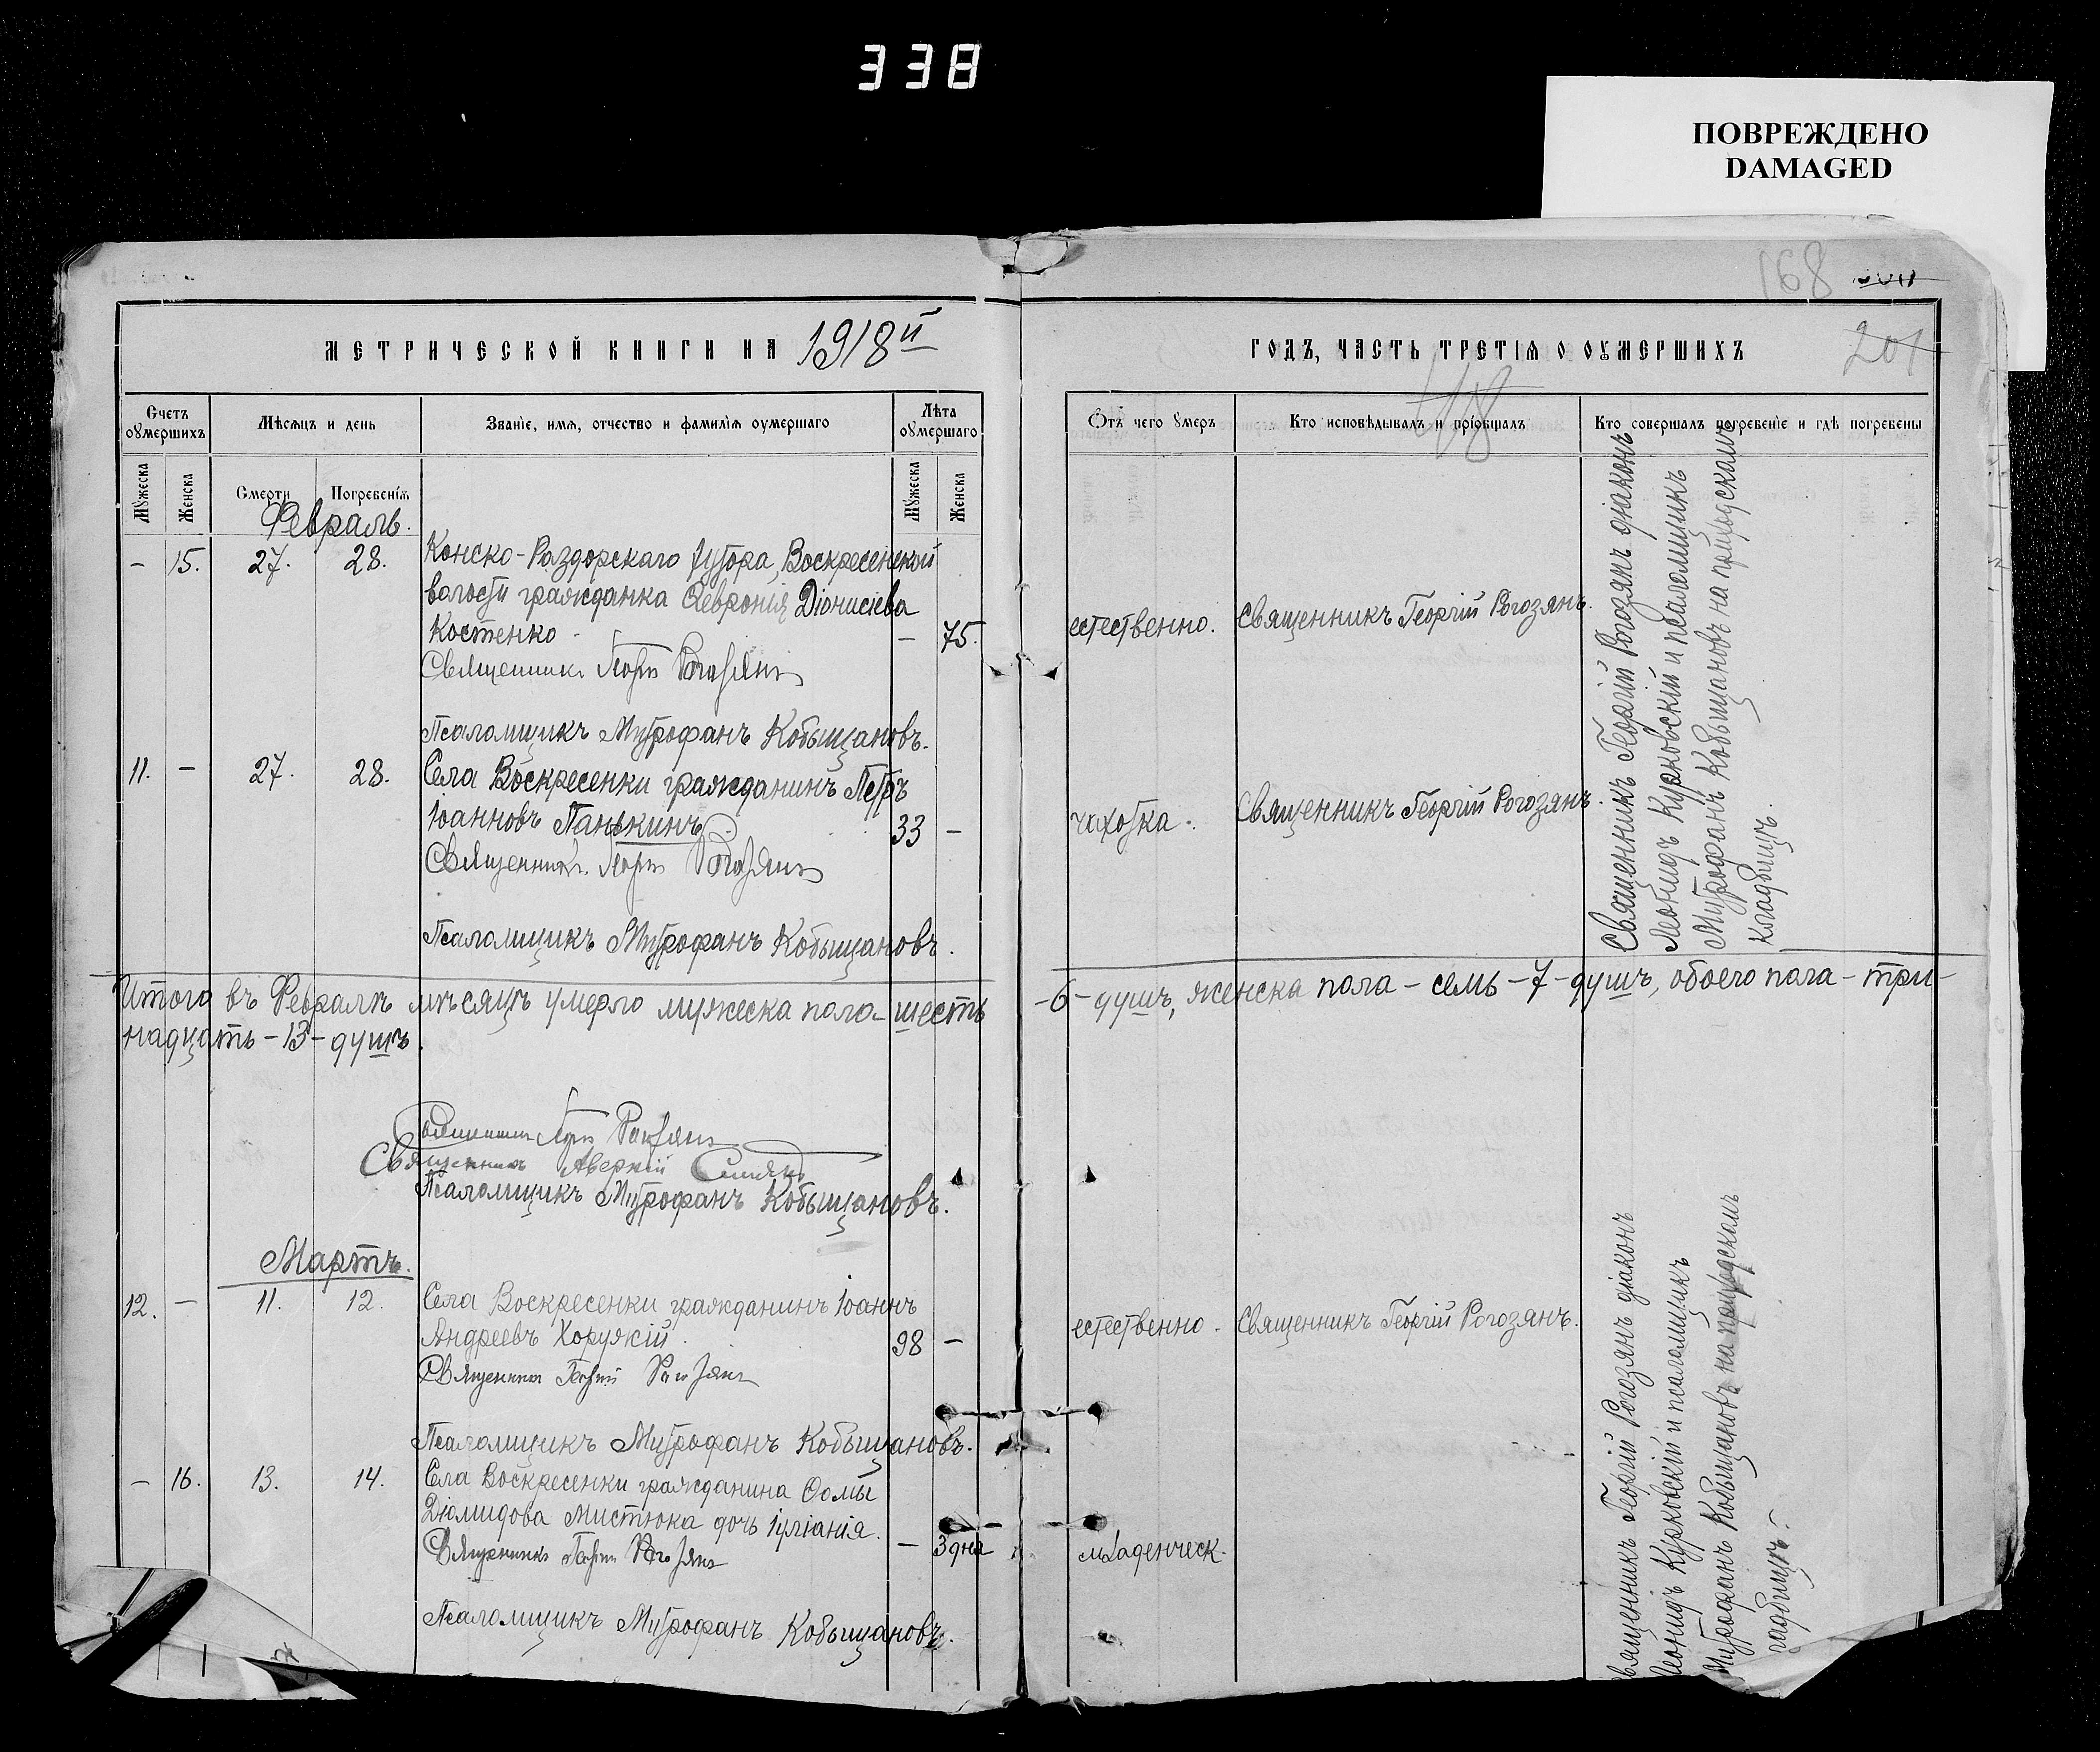 338
ПОВРЕЖДЕНО
DAMAGED
168
201
МЕТРИЧЕСКОЙ КНИГИ НА 1918й
ГОДЪ, ЧАСТЬ ТРЕТІЯ О ОУМЕРШИХЪ
118
Счетъ оумершихъ
Мѣсяцъ и день
Званіе, имя, отчество и фамилія оумершаго
Лѣта оумершаго
Мужеска
Женска
Смерти
Погребенія
Мужеска
Женска
Отъ чего умеръ
Кто исповѣдывалъ и пріобщалъ
Кто совершалъ погребеніе и гдѣ погребены
Февраль.
– 15. 27. 28. Конско-Раздорскаго хутора, Воскресенской
волости гражданка Февронія Діонисіева
Костенко – 75.
естественно. Священникъ Георгій Рогозянъ.
Священникъ Георгій Рогозянъ
Псаломщикъ Митрофанъ Кобыщановъ.
11. – 27. 28. Села Воскресенки гражданинъ Петръ
Іоанновъ Панькинъ. 33 –
чахотка. Священникъ Георгій Рогозянъ.
Священникъ Георгій Рогозянъ
Псаломщикъ Митрофанъ Кобыщановъ.
Священникъ Георгій Рогозянъ діаконъ
Леонидъ Курковскій и псаломщикъ
Митрофанъ Кобыщановъ на приходскомъ
кладбищѣ.
Итого въ Февралѣ мѣсяцѣ умерло мужеска пола – шесть
–6– душъ, женска пола – семь –7– душъ, обоего пола – три–
надцать –13– душъ.
Священникъ Георгій Рогозянъ
Священникъ Аверкій
Псаломщикъ Митрофанъ Кобыщановъ.
Мартъ.
12. – 11. 12. Села Воскресенки гражданинъ Іоаннъ
Андреевъ Хоружій. 98 –
естественно. Священникъ Георгій Рогозянъ.
Священникъ Георгій Рогозянъ
Псаломщикъ Митрофанъ Кобыщановъ.
– 16. 13. 14. Села Воскресенки гражданина Ѳомы
Діомидова Мистюка дочь Іуліанія. – 3 дня
младенческ.
Священникъ Георгій Рогозянъ
Псаломщикъ Митрофанъ Кобыщановъ.
Священникъ Георгій Рогозянъ діаконъ
Леонидъ Курковскій и псаломщикъ
Митрофанъ Кобыщановъ на приходскомъ
кладбищѣ.